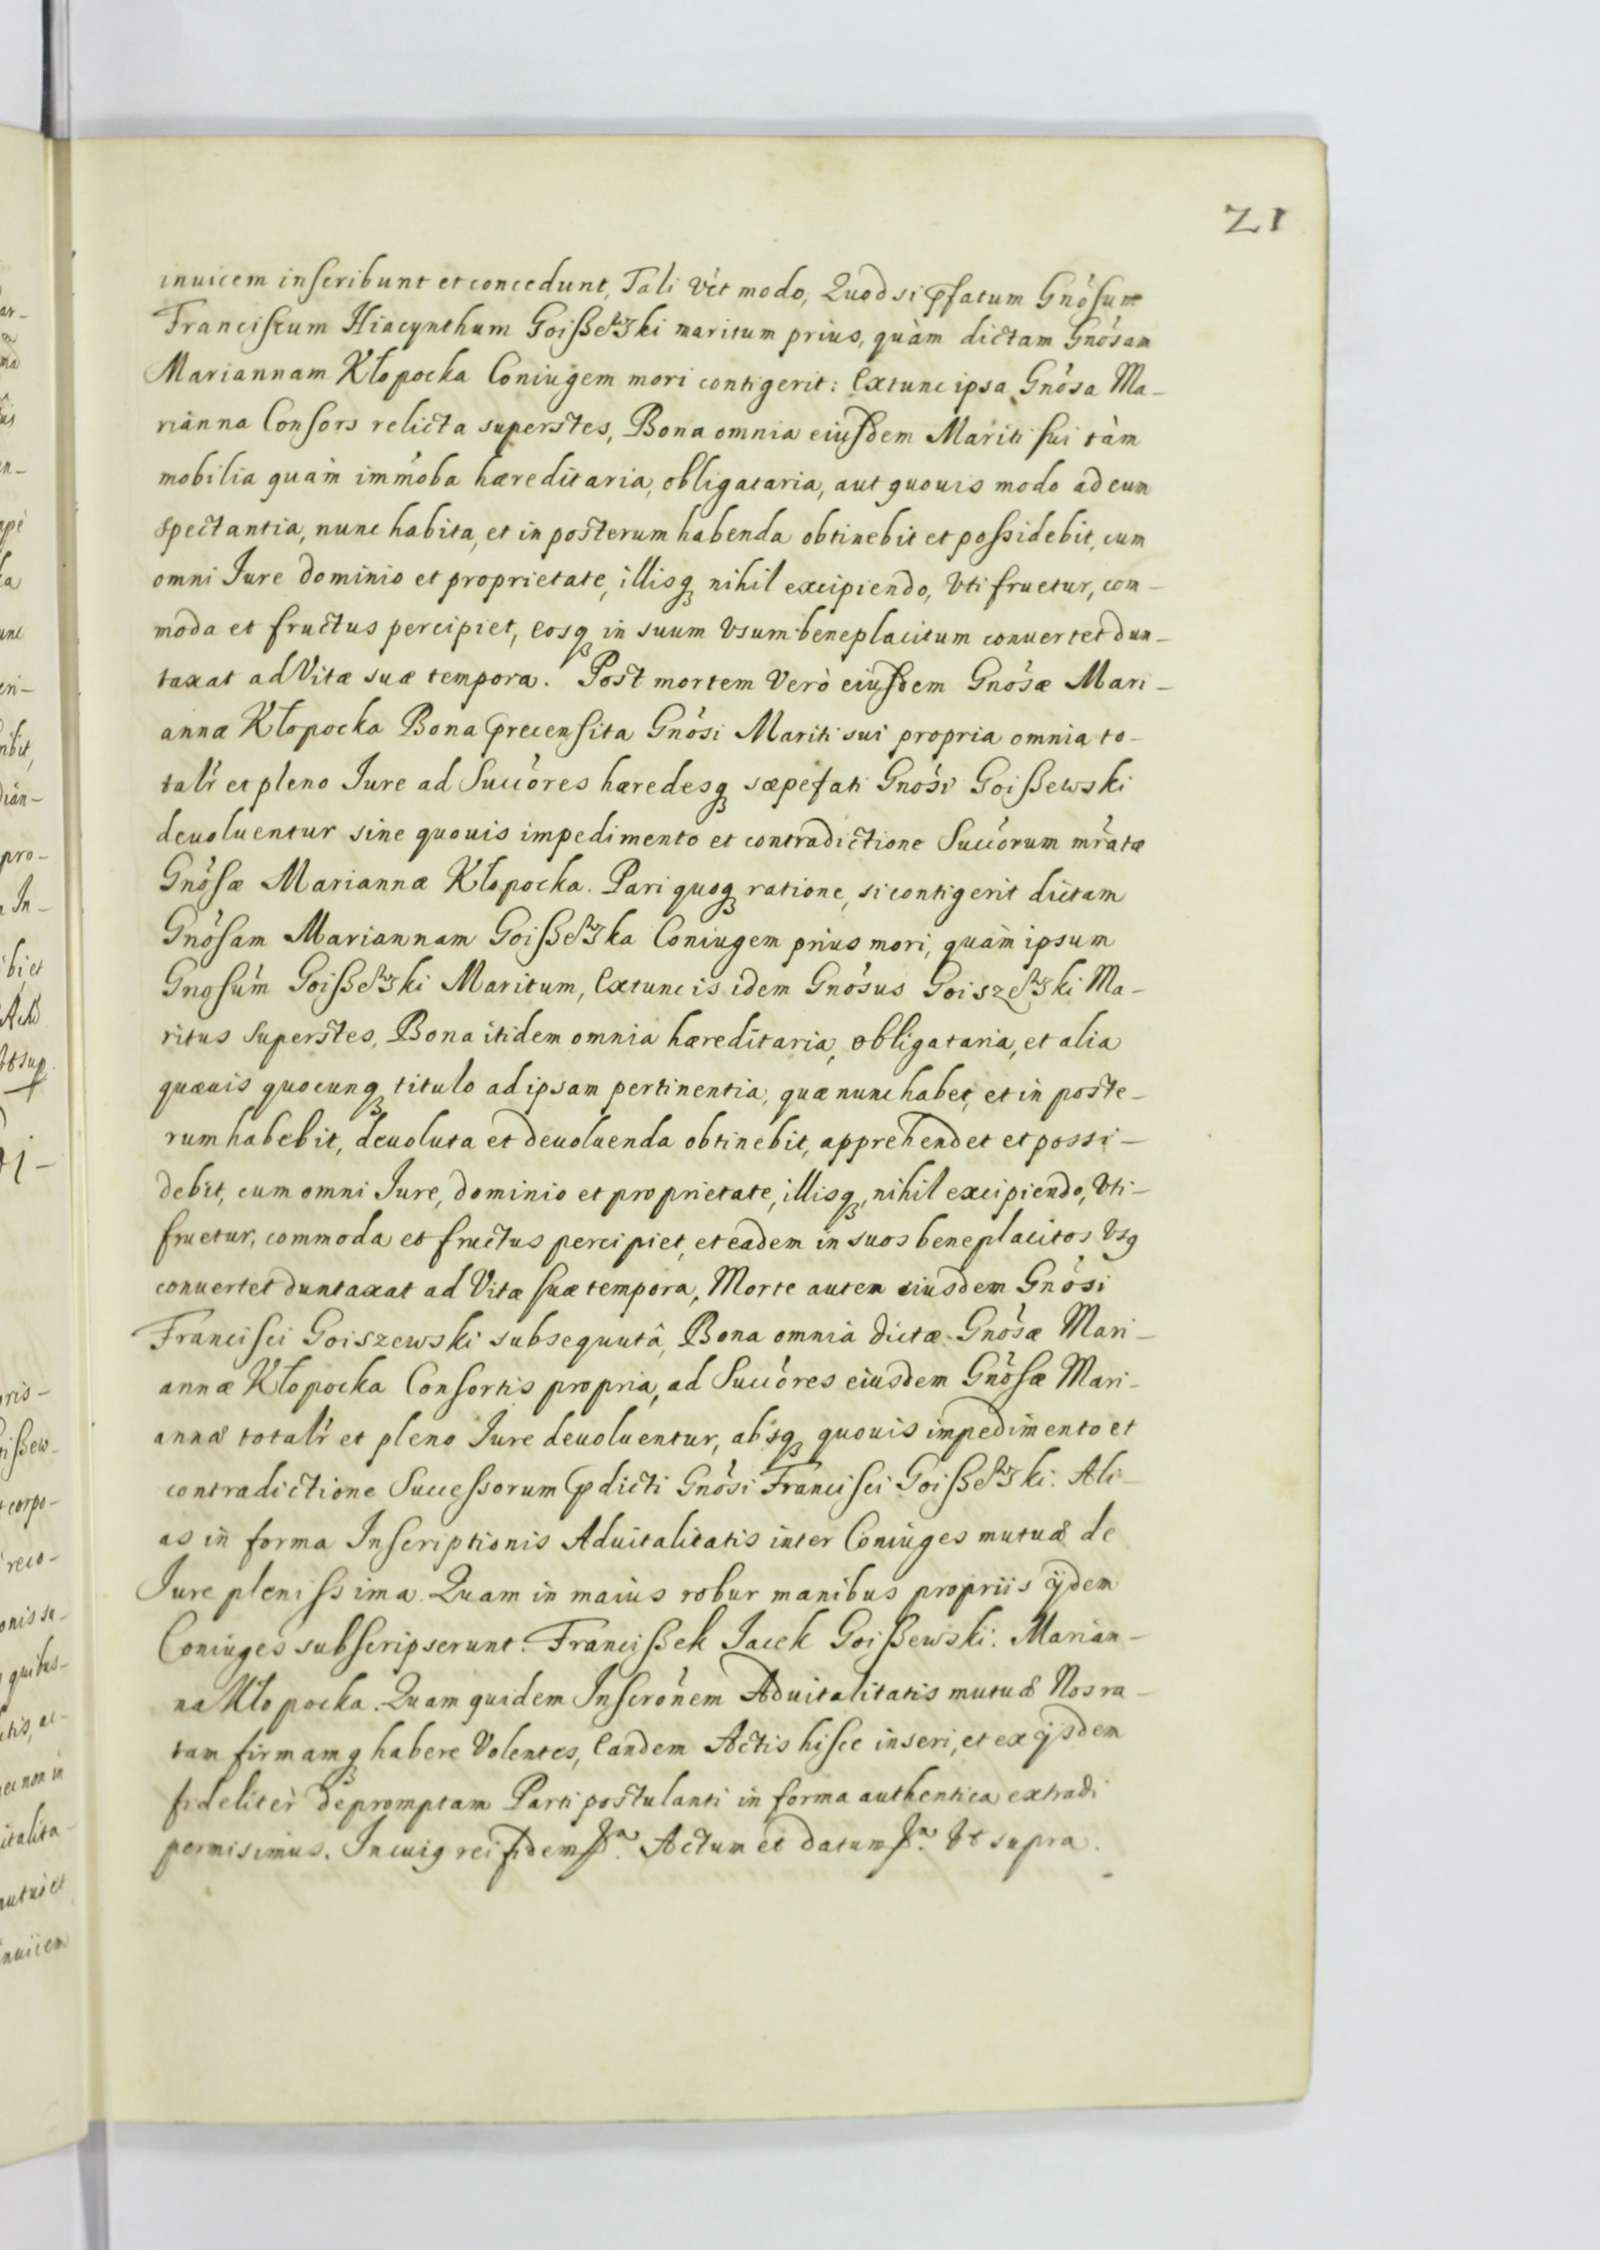 21
inuicem inscribunt et concedunt, Tali vèt modo, Quod si pfatum Gnõsum
Franciscum Hiacynthum Goißewski maritum prius, quàm dictam Gnõsam
Mariannam Kłopocka Coniugem mori contigerit: Extunc ipsa Gnõsa Ma-
rianna Consors relicta superstes, Bona omnia eiusdem Mariti sui tàm
mobilia quàm immõba hæreditaria, obligataria, aut quouis modo ad eum
spectantia, nunc habita, et in posterum habenda obtinebit et possidebit, cum
omni Jure dominio et proprietate, illisq nihil excipiendo, Vti fruetur, com-
moda et fructus percipiet, eosq in suum Vsum beneplacitum conuertet dun-
taxat ad Vitæ suæ tempora. Post mortem Verò eiusdem Gnõsæ Mari-
annæ Kłopocka Bona precensita Gnõsi Mariti sui propria omnia to-
talr et pleno Jure ad Succõres hæredesq sæpefati Gnõsi Goißewski
deuoluentur sine quouis impedimento et contradictione Succõrum mratæ
Gnõsæ Mariannæ Kłopocka. Pari quoq ratione, si contigerit dictam
Gnõsam Mariannam Goißewska Coniugem prius mori, quàm ipsum
Gnosum Goißewski Maritum, Extunc is idem Gnõsus Goiszewski Ma-
ritus Superstes, Bona itidem omnia hæreditaria, obligataria, et alia
quæuis quocunq titulo ad ipsam pertinentia, quæ nunc habet, et in poste-
rum habebit, deuoluta et deuoluenda obtinebit, apprehendet et possi-
debit, cum omni Jure, dominio et proprietate, illisq, nihil excipiendo, Vti-
fruetur, commoda et fructus percipiet, et eadem in suos beneplacitos Vsq
conuertet duntaxat ad Vitæ suæ tempora, Morte autem eiusdem Gnõsi
Francisci Goiszewski subsequutâ, Bona omnia dictæ Gnõsæ Mari-
annæ Kłopocka Consortis propria, ad Succõres eiusdem Gnõsæ Mari-
annæ totalr et pleno Jure deuoluentur, absq quouis impedimento et
contradictione Successorum pdicti Gnõsi Francisci Goißewski. Ali-
as in forma Inscriptionis Aduitalitatis inter Coniuges mutuæ de
Jure plenissima. Quam in maius robur manibus propriis ijdem
Coniuges subscripserunt. Francißek Jacek Goißewski. Marian-
na Kłopocka. Quam quidem Inscrõnem Aduitalitatis mutuæ Nos ra-
tam firmamq habere Volentes, Eandem Actis hisce inseri, et ex ijsdem
fideliter depromptam Parti postulanti in forma authentica extradi
permisimus. In cuiq rei fidem &a. Actum et datum &a. Vt supra.